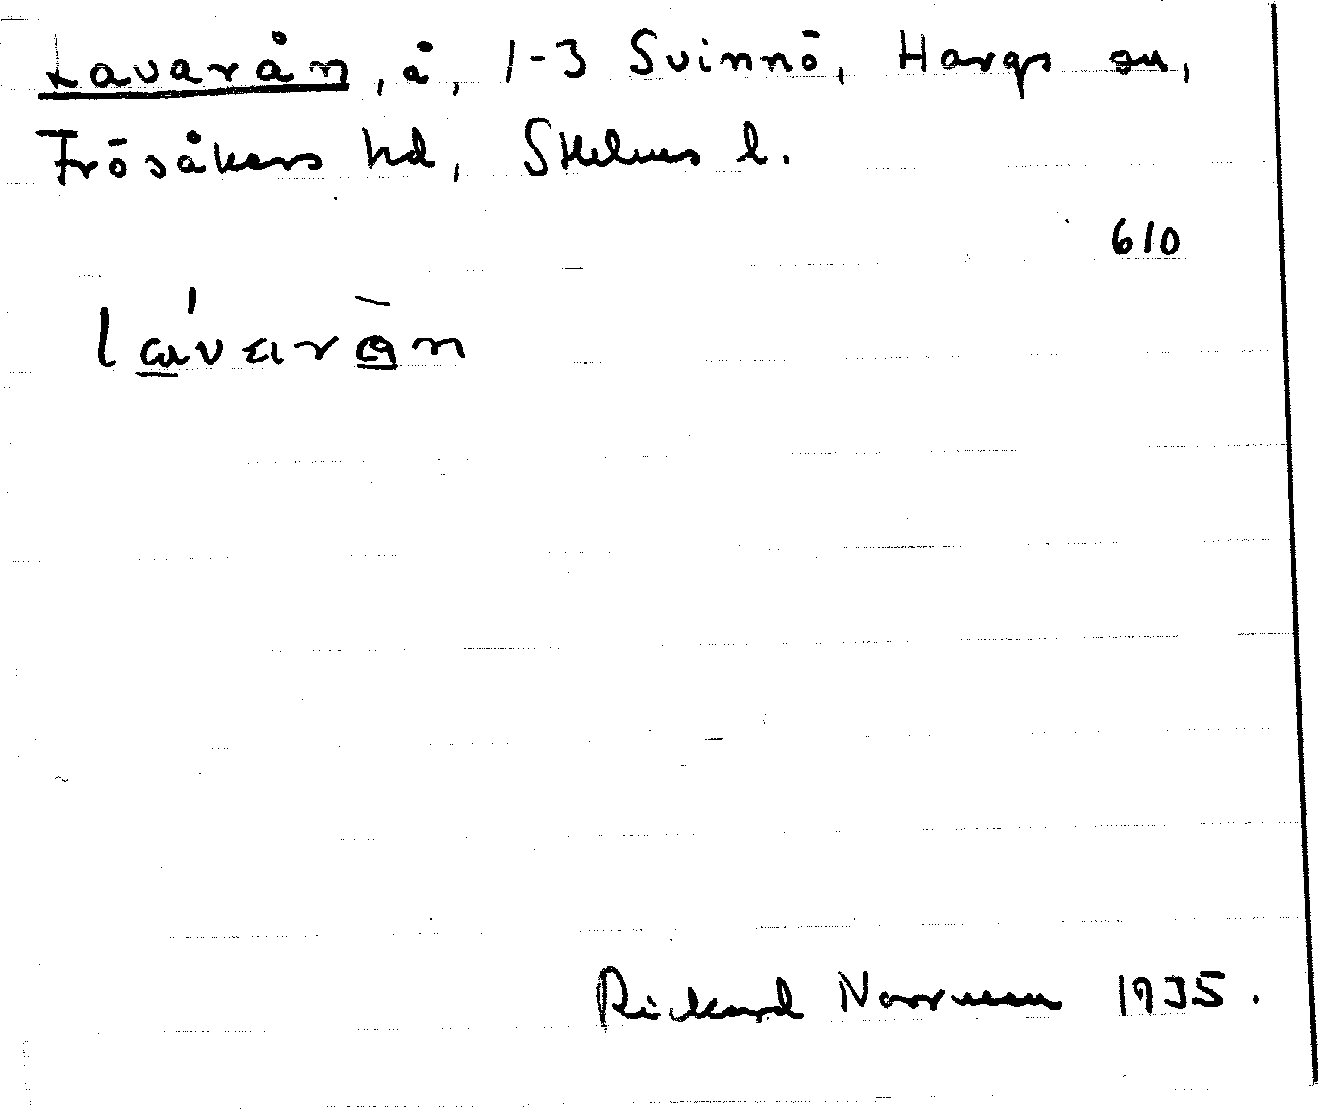 Lavarån, å, 1-3 Svinnö, Hargs sn,
Frösåkers hd, Sthlms l.
610
lávaràn
Rickard Norrman 1935.